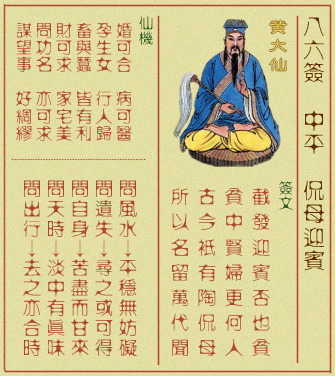 八六簽 中平 侃母迎賓
黃大仙
簽文
截發迎賓否也貧
貧中賢婦更何人
古今衹有陶侃母
所以名留萬代聞
仙機
婚可合 病可醫
孕生女 行人歸
畜與蠶 皆有利
財可求 家宅美
問功名 亦可求
謀望事 好綢繆
問風水→平穩無妨礙
問遺失→尋之或可得
問自身→苦盡而甘來
問天時→淡中有眞味
問出行→去之亦合時